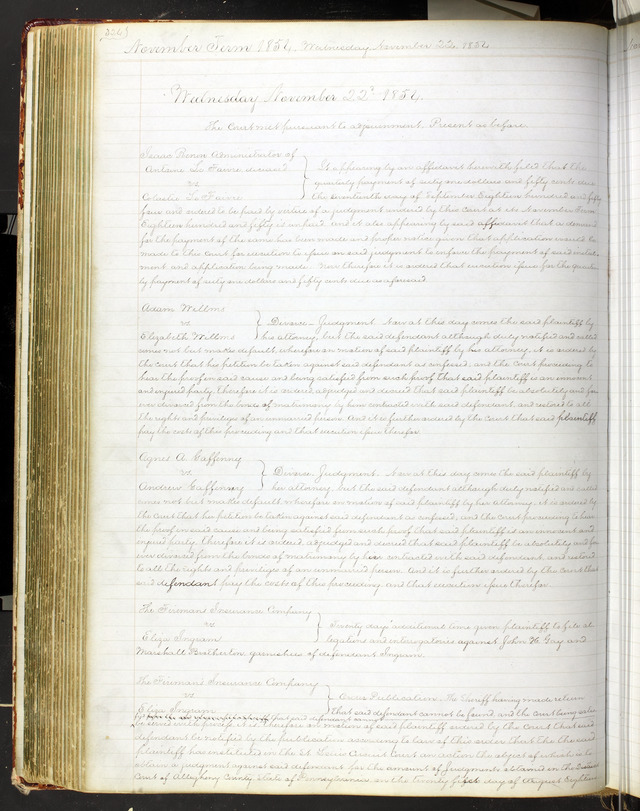 334)
November Term 1854. Wednesday November 22d. 1854
Wednesday November 22d 1854.
The Court met pursuant to adjournment. Present as before.
Administrator of
Antoine Le Favre deceased
vs
Le Favre
It appearing by an affidavit herewith filed that the
quarterly payment of sixty one dollars and fifty cents due
the seventeenth day of September Eighteen hundred and fifty
four and ordered to be paid by virtue of a judgment rendered by this Court at its November Term
Eighteen hundred and fifty is unpaid and it also appearing by said affidavit that a demand
for the payment of the same has been made and proper notice given that application would be
made to this Court for execution to issue on said judgment to enforce the payment of said install-
ment and application being made. Now therefore it is ordered that execution issue for the quarter-
ly payment of sixty one dollars and fifty cents due as aforesaid
Adam Willms
vs
Elizabeth Willms
Divorce. Judgment. Now at this day comes the said plaintiff by
his attorney, but the said defendant although duly notified and called
comes not but makes default, wherefore on motion of said plaintiff by his attorney, it is ordered by
the Court that his petition be taken against said defendant as confessed; and the Court proceeding to
hear the proof in said cause and being satisfied from such proof that said plaintiff is an innocent
and injured party, therefore it is ordered adjudged and decreed that said plaintiff be absolutely and for-
ever divorced from the bonds of matrimony by him contracted with said defendant and restored to all
the rights and privileges of an unmarried person. And it is further ordered by the Court that said plaintiff
pay the costs of this proceeding and that execution issue therefor
Agnes A. Gaffenney
vs
Andrew Gaffenney
Divorce. Judgment. Now at this day comes the said plaintiff by
her attorney but the said defendant although duly notified and called
comes not but makes default wherefore on motion of said plaintiff by her attorney, it is ordered by
the Court that her petition be taken against said defendant as confessed, and the Court proceeding to hear
the proof in said cause and being satisfied from such proof that said plaintiff is an innocent and
injured party, therefore it is ordered adjudged and decreed that said plaintiff be absolutely and for-
ever divorced from the bonds of matrimony by her contracted with said defendant and restored
to all the rights and privileges of an unmarried person. And it is further ordered by the Court that
said defendant pay the costs of this proceeding and that execution issue therefor
The Firemans Insurance Company
vs
Eliza Ingram
Twenty days additional time given plaintiff to file al-
legations and interrogatories against John H. Gay and
Marshall Brotherton garnishees of defendant Ingram.
The Firemans Insurance Company
vs
Eliza Ingram
Order Publication. The Sheriff having made return
that said defendant cannot be found, and the Court being satis-
that said defendant cannot
it is therefore on motion of said plaintiff ordered by the Court that said
defendant be notified by the publication according to law of this order that the said
plaintiff has instituted in the St. Louis Circuit Court an action the object of which is to
obtain a judgment against said defendant for the amount of judgments obtained in the District
Court of Alleghany County State of Pennsylvania, on the twenty first day of August Eighteen